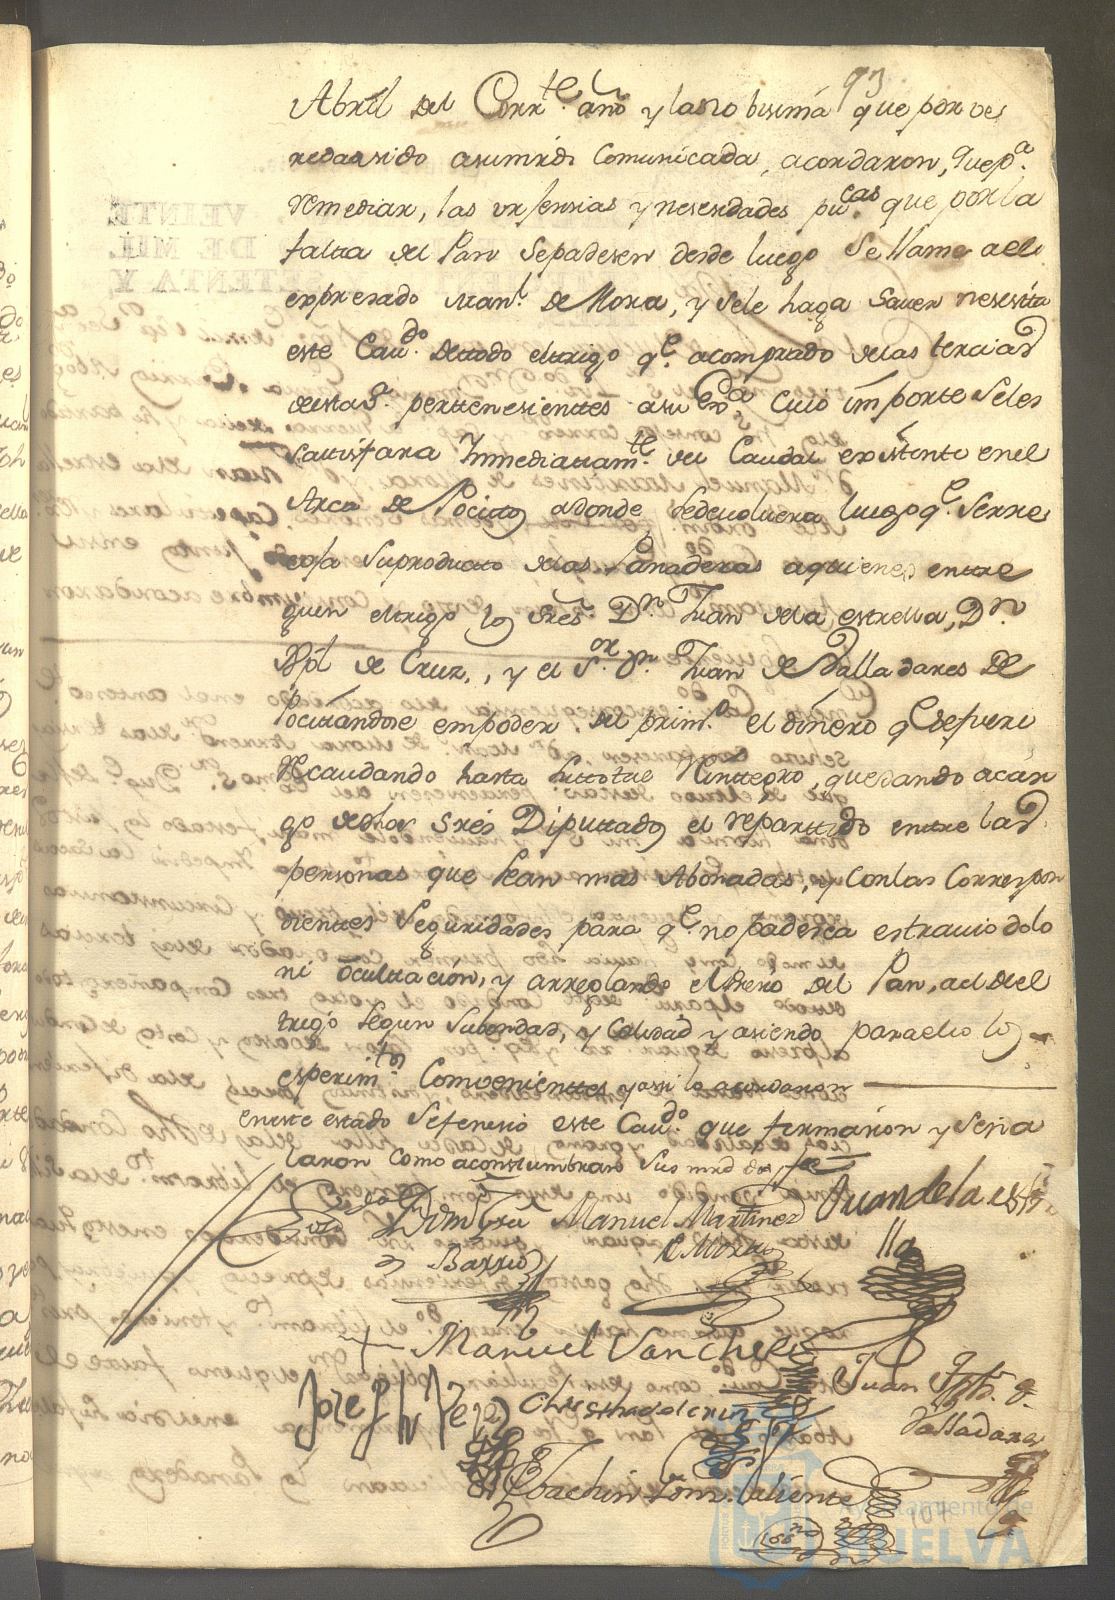 93
Abril del Corrte. año y la ultima que por
se ha sido asumrd. Comunicada, acordaron, que pa.
remediar, las urgensias y nesesidades pucas. que por la
falta del Pan se padesen desde luego se llame a el
expresado Manl. de Mora, y se le haga saver nesesita
este Cavdo. de todo el trigo qe. a comprado de las tercias
de esta va. pertenesientes a su Exa. cuio importe se les
sattisfara Inmediattamte. del Caudal existente en el
Arca de Positos adonde se devolvera luego qe. se rre
coja su producto de las Panaderas a quienes entre
guen el trigo los sres. Dn. Juan de la estrella, Dn.
Xptl de Cruz, y el Sor. Dn. Juan de Valladares de
positandose em poder del primo. el dinero qe. se fuere
Recaudando hasta su total Rinttegro, quedando a car
go de dhos sres Diputtados el repartido entre las
personas que sean mas Abonadas, y con las Correspon
dientes Seguridades para qe. no padesca estravio dolo
ni ocultacion, y arreglando el Presio del Pan, al del
trigo segun su bondad, y Calidad y asiendo para ello los
esperimtos. Combenienttes y assi lo acordaron
en este estado se fenesio este Cavdo. que firmaron y seña
laron como acostumbran sus mrds doy fee
Barrio
Manuel Martinez
Mora
Juan de la estre
lla
Manuel Sanchez
Joseph
Juan
Valladares
Joachin Valiente
Ayuntamiento de
HUELVA